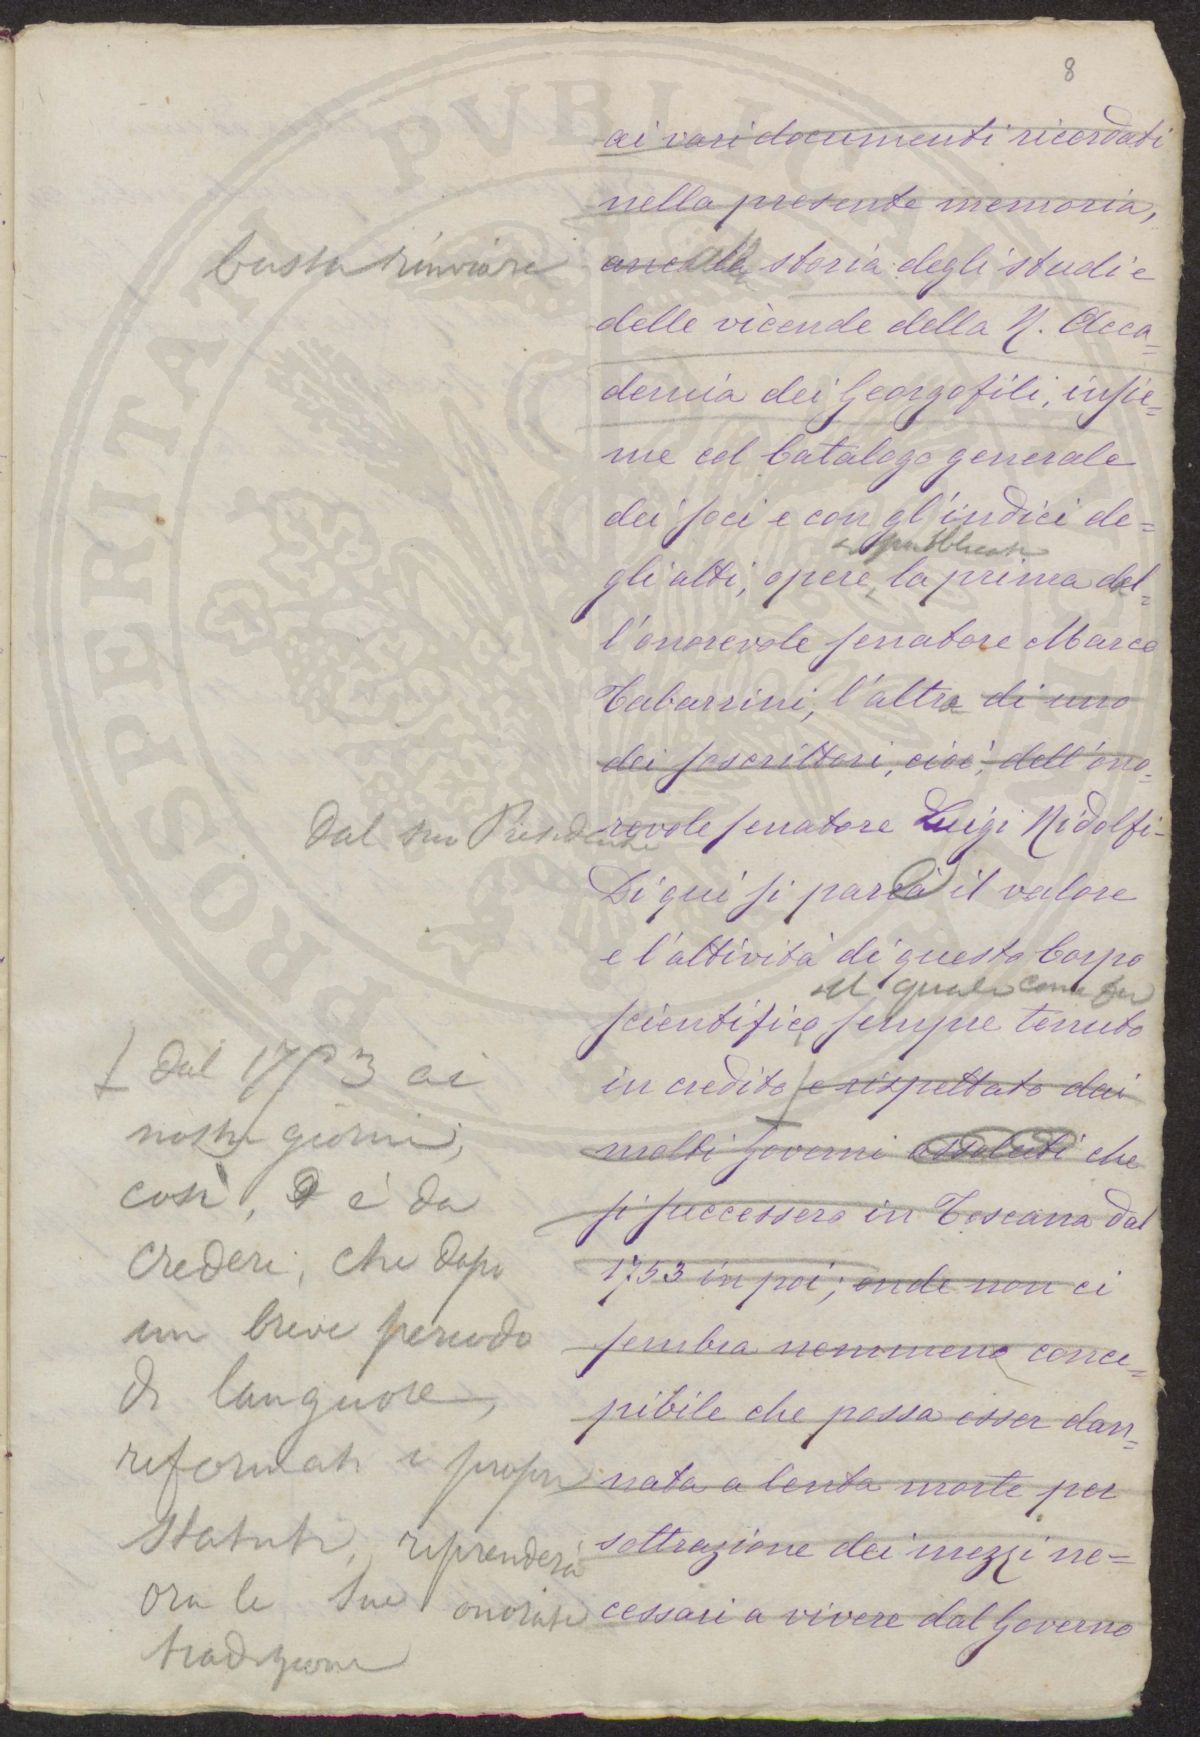 8
ai vari documenti ricordati
nella presente memoria,
basta rinviare
anco alla storia degli studi e
delle vicende della R. Acca=
demia dei Georgofili, insie=
me col Catalogo generale
dei soci e con gl'indici de=
pubblicati
gli atti, opere, la prima del=
l'onorevole senatore Marco
Tabarrini, l'altra di uno
dei soscrittori, cioè, dell'ono=
dal suo Presidente
revole senatore Luigi Ridolfi.
Di qui si parrà il valore
e l'attività di questo Corpo
il quale come fu
scientifico, sempre tenuto
in credito e rispettato dai
molti Governi assoluti che
si successero in Toscana dal
1753 in poi; onde non ci
sembra nemmeno conce=
pibile che possa esser dan=
nata a lenta morte per
sottrazione dei mezzi ne=
cessari a vivere dal Governo
dal 1753 ai
nostri giorni,
così, è da
credere, che dopo
un breve periodo
di languore,
riformati i propri
statuti, riprenderà
ora le sue onorate
tradizioni
PROSPERITATI PVBLICAE